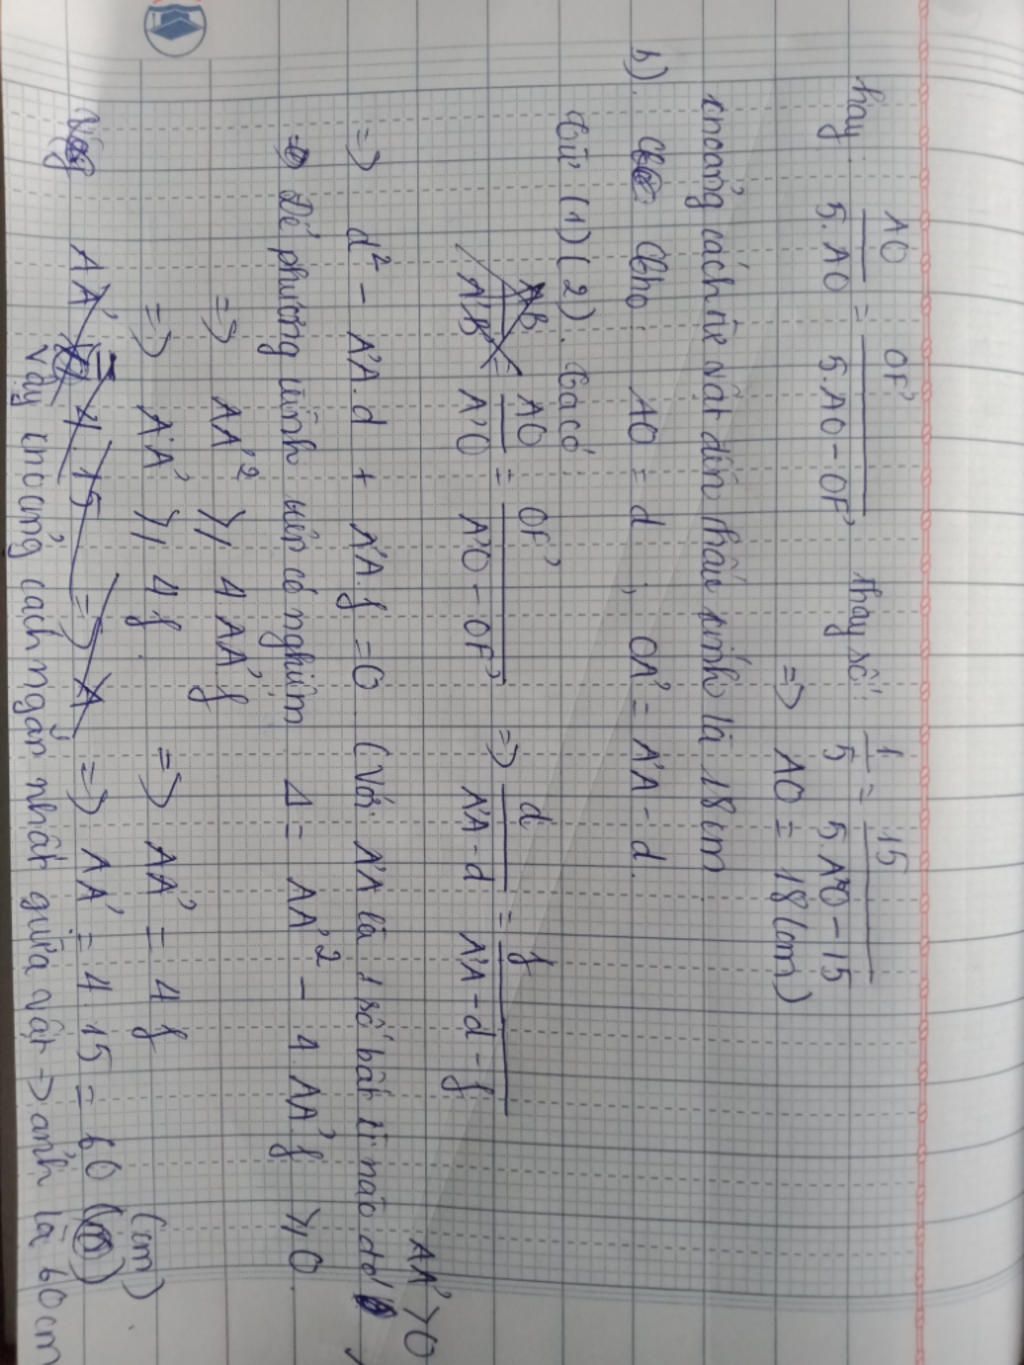 hay AO / 5.AO = OF' / 5.AO - OF' thay số: 1 / 5 = 15 / 5.AO - 15
=> AO = 18 (cm)
khoảng cách từ vật đến thấu kính là 18cm
b). Cho AO = d, OA' = A'A - d.
Từ (1) (2). Ta có:
AB / A'B' = AO / A'O = OF' / A'O - OF' => d / A'A - d = f / A'A - d - f
AA' > 0
=> d² - A'A.d + A'A.f = 0 (Với A'A là 1 số bất kì nào đó
=> Để phương trình trên có nghiệm Δ = AA'² - 4 AA'f ⩾ 0
=> AA'² ⩾ 4 AA'f
=> AA' ⩾ 4f. => AA' = 4f (cm)
Vậy AA' = 4.15 => A => AA' = 4.15 = 60 (cm)
Vậy khoảng cách ngắn nhất giữa vật -> ảnh là 60cm